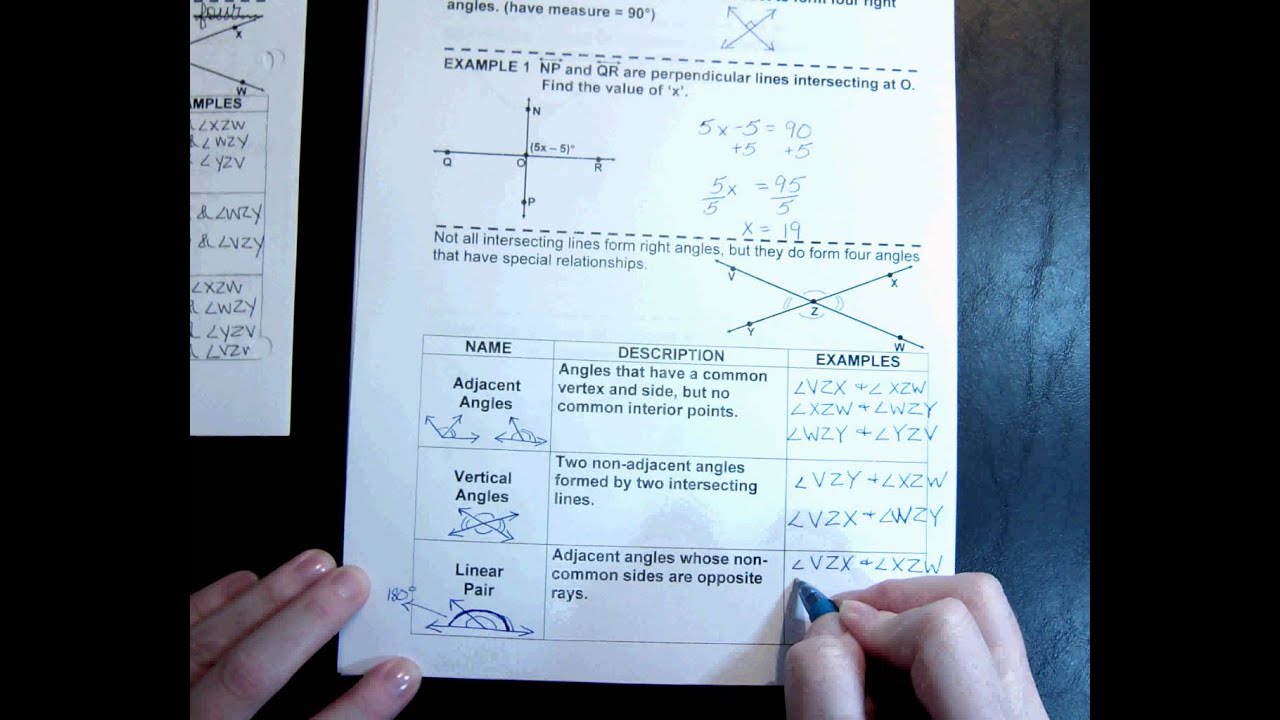 X
W
MPLES
∠XZW
& ∠WZY
∠YZV
& ∠WZY
& ∠VZY
∠XZW
∠WZY
∠YZV
∠VZ
angles. (have measure = 90°)
EXAMPLE 1 NP and QR are perpendicular lines intersecting at O.
Find the value of ‘x’.
N
(5x – 5)°
Q
O
R
P
5x -5 = 90
+5 +5
5x = 95
5 5
x = 19
Not all intersecting lines form right angles, but they do form four angles
that have special relationships.
V
X
Z
Y
W
NAME DESCRIPTION EXAMPLES
Adjacent
Angles
Angles that have a common
vertex and side, but no
common interior points.
∠VZX + ∠XZW
∠XZW + ∠WZY
∠WZY + ∠YZV
Vertical
Angles
Two non-adjacent angles
formed by two intersecting
lines.
∠VZY + ∠XZW
∠VZX + ∠WZY
Linear
Pair
180°
Adjacent angles whose non-
common sides are opposite
rays.
∠VZX + ∠XZW